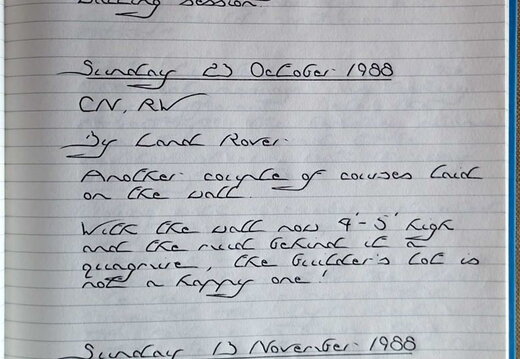 session.
Sunday 23 October 1988
CN, RW
By Land Rover.
Another couple of courses laid
on the wall.
With the wall now 4'-5' high
and the mud behind it a
quagmire, the builder's lot is
not a happy one!
Sunday 13 November 1988